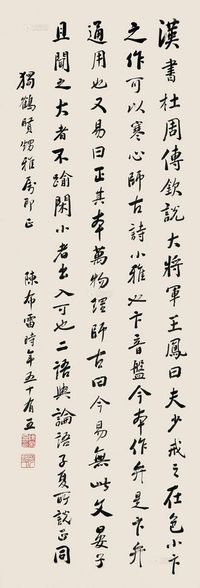 漢書杜周傳欽說大將軍王鳳曰夫少戒之在色小卞
之作可以寒心師古詩小雅也卞音盤今本作弁是卞弁
通用也又易曰正其本萬物理師古曰今易無此文晏子
且聞之大者不踰閑小者出入可也二語與論語子夏所說正同
獨鶴賢甥雅屬即正
陳布雷時年五十有五